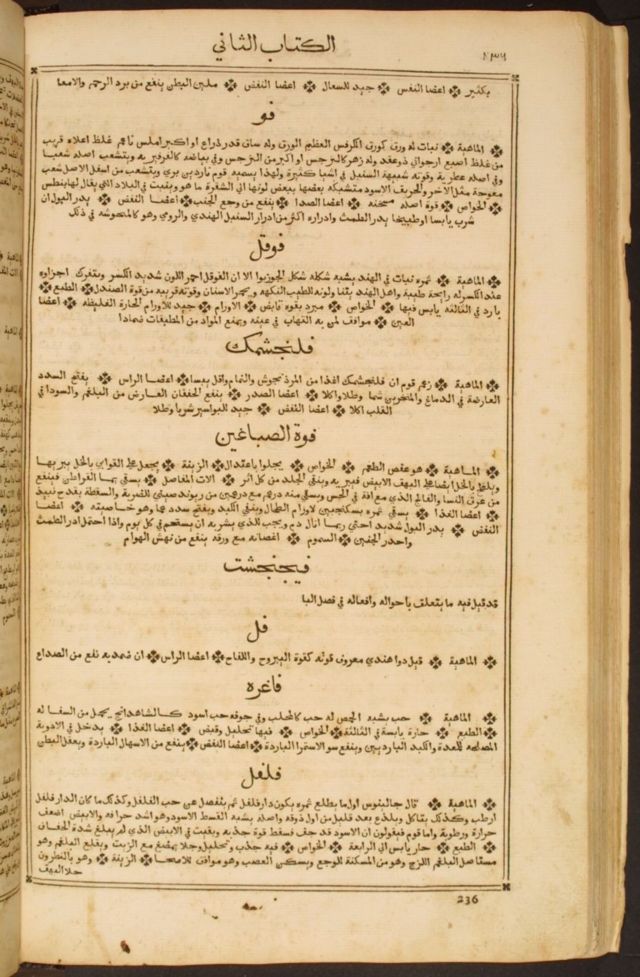 الكتاب الثاني
٢٣٦
بكثير ❖ اعضا النفس ❖ جيد للسعال ❖ اعضا النفض ❖ ملين البطن ينفع من برد الرحم والامعا
فو
❖ الماهية ❖ نبات له ورق كورق الكرفس العظيم الورق وله ساق قدر ذراع او اكبر املس ناعم غلظ اعلاه قريب
من غلظ اصبع ارجواني ذو عقد وله زهر كالنرجس او اكبر من النرجس وفي بياضه كالفرفيريه ويتشعب اصله شعبا
وفي اصله عطرية وقوته شبيهة السنبل في اشيا كثيرة ولهذا يسميه قوم ناردين بري ويتشعب من اسفل الاصل شعب
معوجة مثل الاخر والخربق الاسود متشبكه بعضها ببعض لونها الي الشقرة ما هو وينبت في البلاد التي يقال لها بنطس
❖ الخواص ❖ قوة اصله مسخنه ❖ اعضا الصدا ❖ ينفع من وجع الجنب ❖ اعضا النفض ❖ يدر البول ان
شرب يابسا او طبيخا يدر الطمث وادراره اكثر من ادرار السنبل الهندي والرومي وهو كالمنحوشه في ذلك
فوفل
❖ الماهية ❖ ثمره نبات في الهند يشبه شكله شكل الجوزبوا الا ان الفوفل احمر اللون شديد الكسر ويتفرك اجزاوه
عند الكسر له رايحة طيبة واهل الهند يتنا ولونه للطيب النكهه ويحمر الاسنان وقوته قريبه من قوة الصندل ❖ الطبع ❖
بارد في الثالثه يابس فيها ❖ الخواص ❖ مبرد بقوه قابض ❖ الاورام ❖ جيد للاورام الحارة الغليظه ❖ اعضا
العين ❖ موافق لمن به التهاب في عينه ويمنع المواد من المطبقات ضمادا
فلنجشمك
❖ الماهية ❖ زعم قوم ان فلنجشمك اغذا من المرزنجوش والنمام واقل يبسا ❖ اعضا الراس ❖ يفتح السدد
العارضة في الدماغ والمنخرين شما وطلا واكلا ❖ اعضا الصدر ❖ ينفع الخفقان العارض من البلغم والسودا في
القلب اكلا ❖ اعضا النفض ❖ جيد للبواسير شربا وطلا
فوة الصباغين
❖ الماهية ❖ هو عفص الطعم ❖ الخواص ❖ يجلوا باعتدال ❖ الزينة ❖ يجعل علي القوابي بالخل يبريها
ويلطخ بالخل ايضا علي البهق الابيض فيبريه وينقي الجلد من كل اثر ❖ الات المفاصل ❖ يسقي بما القراطن فينفع
من عرق النسا والفالج الذي مع افة في الحس ويسقي منه درهم مع درهمين من ريوند صيني للضربة والسقطة بقدح نبيذ
❖ اعضا الغذا ❖ يسقي ثمره بسكنجبين لاورام الطحال وينقي الكبد ويفتح سددهما وهو خاصيته ❖ اعضا
النفض ❖ يدر البول شديدا حتي ربما ابال دم ويجب للذي يشربه ان يستحم في كل يوم واذا احتمل ادر الطمث
واحدر الجنين ❖ السموم ❖ اغصانه مع ورقه ينفع من نهش الهوام
فيجنجشت
قد قيل فيه ما يتعلق باحواله وافعاله في فصل البا
فل
❖ الماهية ❖ قيل دوا هندي معروف قوته كقوة اليبروح واللفاح ❖ اعضا الراس ❖ ان ضمد به نفع من الصداع
فاغره
❖ الماهية ❖ حب يشبه الحمص له حب كالمحلب وفي جوفه حب اسود كالشاهدانج يحمل من السفاله
❖ الطبع ❖ حارة يابسة في الثالثة ❖ الخواص ❖ فيها تحليل وقبض ❖ اعضا الغذا ❖ يدخل في الادوية
المصلحه للمعدة والكبد الباردين وينفع سو الاستمرا الباردة ❖ اعضا النفض ❖ ينفع من الاسهال الباردة ويعقل البطن
فلفل
❖ الماهية ❖ قال جالينوس اول ما يطلع ثمره يكون دار فلفل ثم ينفصل عن حب الفلفل وكذلك ما كان الدار فلفل
ارطب وكذلك يتاكل ويلذع بعد قليل من اول ذوقه واصله يشبه القسط الاسود هو اشد حرافه والابيض اضعف
حرارة ورطوبة واما قوم فيقولون ان الاسود قد جف فسقط قوة جذبه وبقيت في الابيض الذي لم يبلغ شدة الجفاف
❖ الطبع ❖ حار يابس الي الرابعة ❖ الخواص ❖ فيه جذب وتحليل وجلا يمضغ مع الزيت ويقلع البلغم وهو
مستاصل البلغم اللزج وهو من المسكنة للوجع ويسخن العصب وهو موافق للاصحا ❖ الزينة ❖ وهو بالنطرون
جلا البهق
236